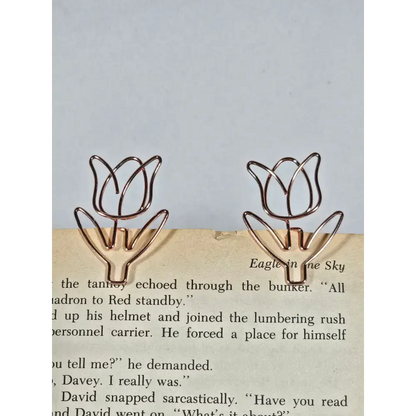 Eagle in the Sky
the tannoy echoed through the bunker. “All
uadron to Red standby.”
d up his helmet and joined the lumbering rush
personnel carrier. He forced a place for himself
ou tell me?” he demanded.
, Davey. I really was.”
David snapped sarcastically. “Have you read
and David went on. “What's it about?”